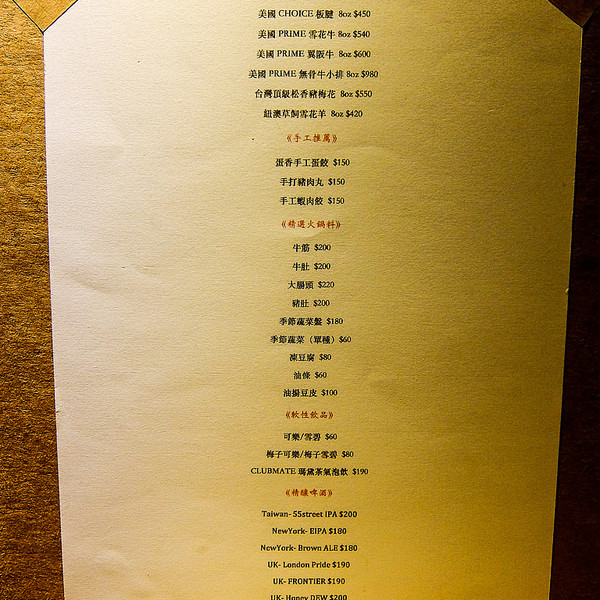 美國 CHOICE 板腱 8oz $450
美國 PRIME 雪花牛 8oz $540
美國 PRIME 翼阪牛 8oz $600
美國 PRIME 無骨牛小排 8oz $980
台灣頂級松香豬梅花 8oz $550
紐澳草飼雪花羊 8oz $420
《手工推薦》
蛋香手工蛋餃 $150
手打豬肉丸 $150
手工蝦肉餃 $150
《精選火鍋料》
牛筋 $200
牛肚 $200
大腸頭 $220
豬肚 $200
季節蔬菜盤 $180
季節蔬菜（單種） $60
凍豆腐 $80
油條 $60
油揚豆皮 $100
《軟性飲品》
可樂/雪碧 $60
梅子可樂/梅子雪碧 $80
CLUBMATE 瑪黛茶氣泡飲 $190
《精釀啤酒》
Taiwan- 55street IPA $200
NewYork- EIPA $180
NewYork- Brown ALE $180
UK- London Pride $190
UK- FRONTIER $190
UK- Honey DEW $200